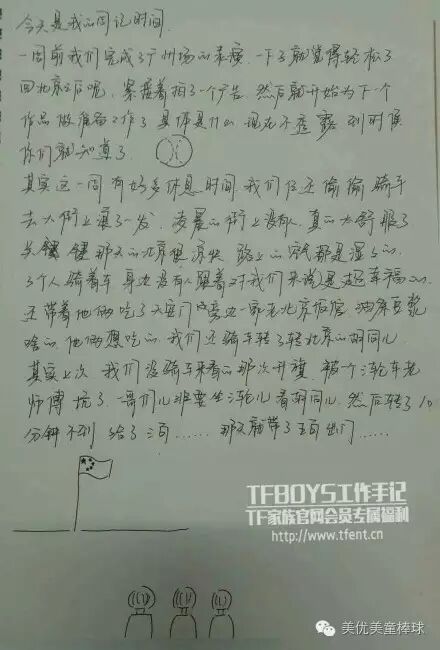 今天是我的周记时间.
一周前我们完成了广州场的录演 一下了就觉得轻松了
回北京之后呢, 紧接着拍了一个广告, 然后就开始为下一个
作品做准备工作了 具体是什么 现在不透露 到时候
你们就知道了.
其实这一周有好多休息时间 我们仨还偷偷骑车
去大街上浪了一发, 凌晨的街上没有人, 真的太舒服了
关键 那天的北京很凉快 路上的空气都是湿的.
3个人骑着车 身边没有人跟着对我们来说是超幸福的.
还带着他俩吃了天安门旁边一家老北京饭馆 油条豆浆
啥的, 他俩想吃的. 我们还骑车转了转北京的胡同儿.
其实上次 我们没骑车来看的那次升旗 被个三轮车老
师傅坑了, 一哥们儿非要坐三轮儿看胡同儿, 然后转了10
分钟不到 给了三百...... 那天就带了五百出门......
TFBOYS工作手记
TF家族官网会员专属福利
http://www.tfent.cn
美优美童棒球